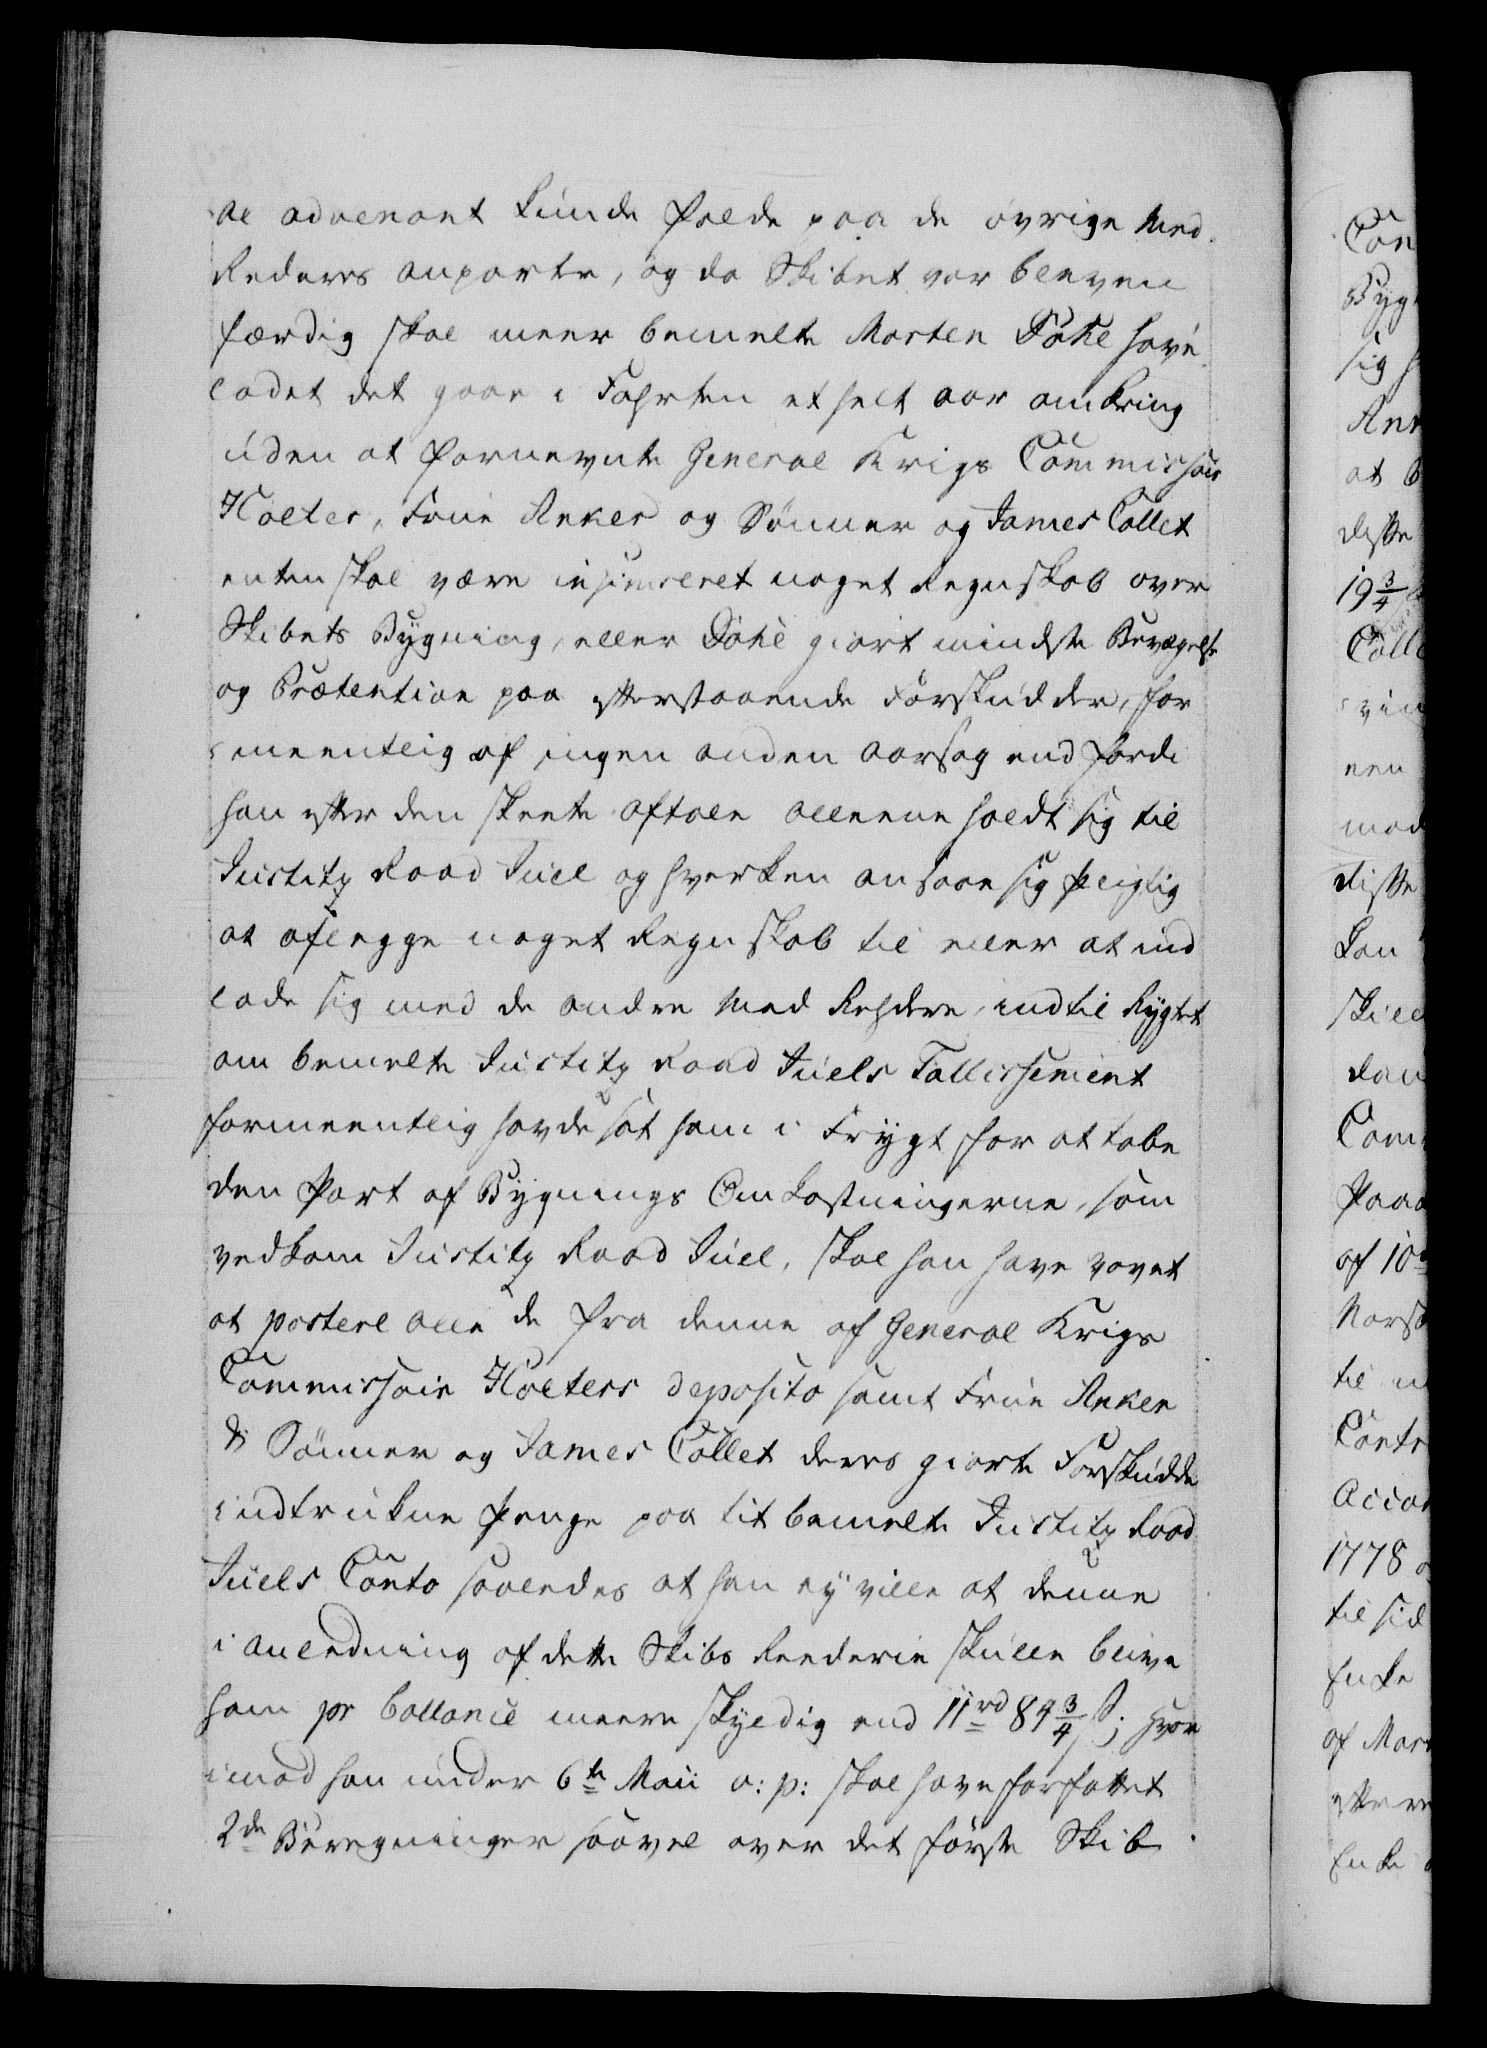 al advenant kunde falde paa de øvrige Med
Rederes anparter, og da Skibet var bleven
færdig skal meer bemelte Morten Døhl have
ladet det gaae i Fahrten et heelt aar omkring
uden at fornevnte General Krigs Commissair
Holter, Frue Anker og Sønner og James Collet
enten skal være insinueret noget Regnskab over
Skibets Bygning, eller Døhl giort mindste Bevægelse
og Prætention paa efterstaaende Forskudder, for
meentlig af ingen anden aarsag end fordi
han efter den skeete aftale alleene holdt sig til
Justitz Raad Juel og hverken ansaae sig pligtig
at aflegge noget Regnskab til eller at ind
lade sig med de andre Med Rehdere, indtil Rygtet
om bemelte Justitz Raad Juels Fallissement
formeentlig havde sat ham i Frygt for at tabe
den Part af Bygnings Omkostningerne, som
vedkom Justitz Raad Juel, skal han have vovet
at postere alle de fra denne af General Krigs
Commissair Holters deposito samt Frue Anker
& Sønner og James Collet deres giorte Forskudde
indtrukne Penge paa tit bemelte Justitz Raad
Juels Conto saaledes at han ey ville at denne
i anledning af dette Skibs Reederie skulle blive
ham pr Ballance meere skyldig end 11 rd 84 3/4 s; hvor
imod han under 6te Maii a: p: skal have forfattet
2de Beregninger saavel over det første Skib
Con
Byg
sig h
Ann
at b
disse
19 3/4
Coll
vin
nen
mod
disse
kan
skill
dan
Com
paa
af 10
Norsk
til
Contr
Accor
1778
til sid
Enke
af Mor
efter
Enke